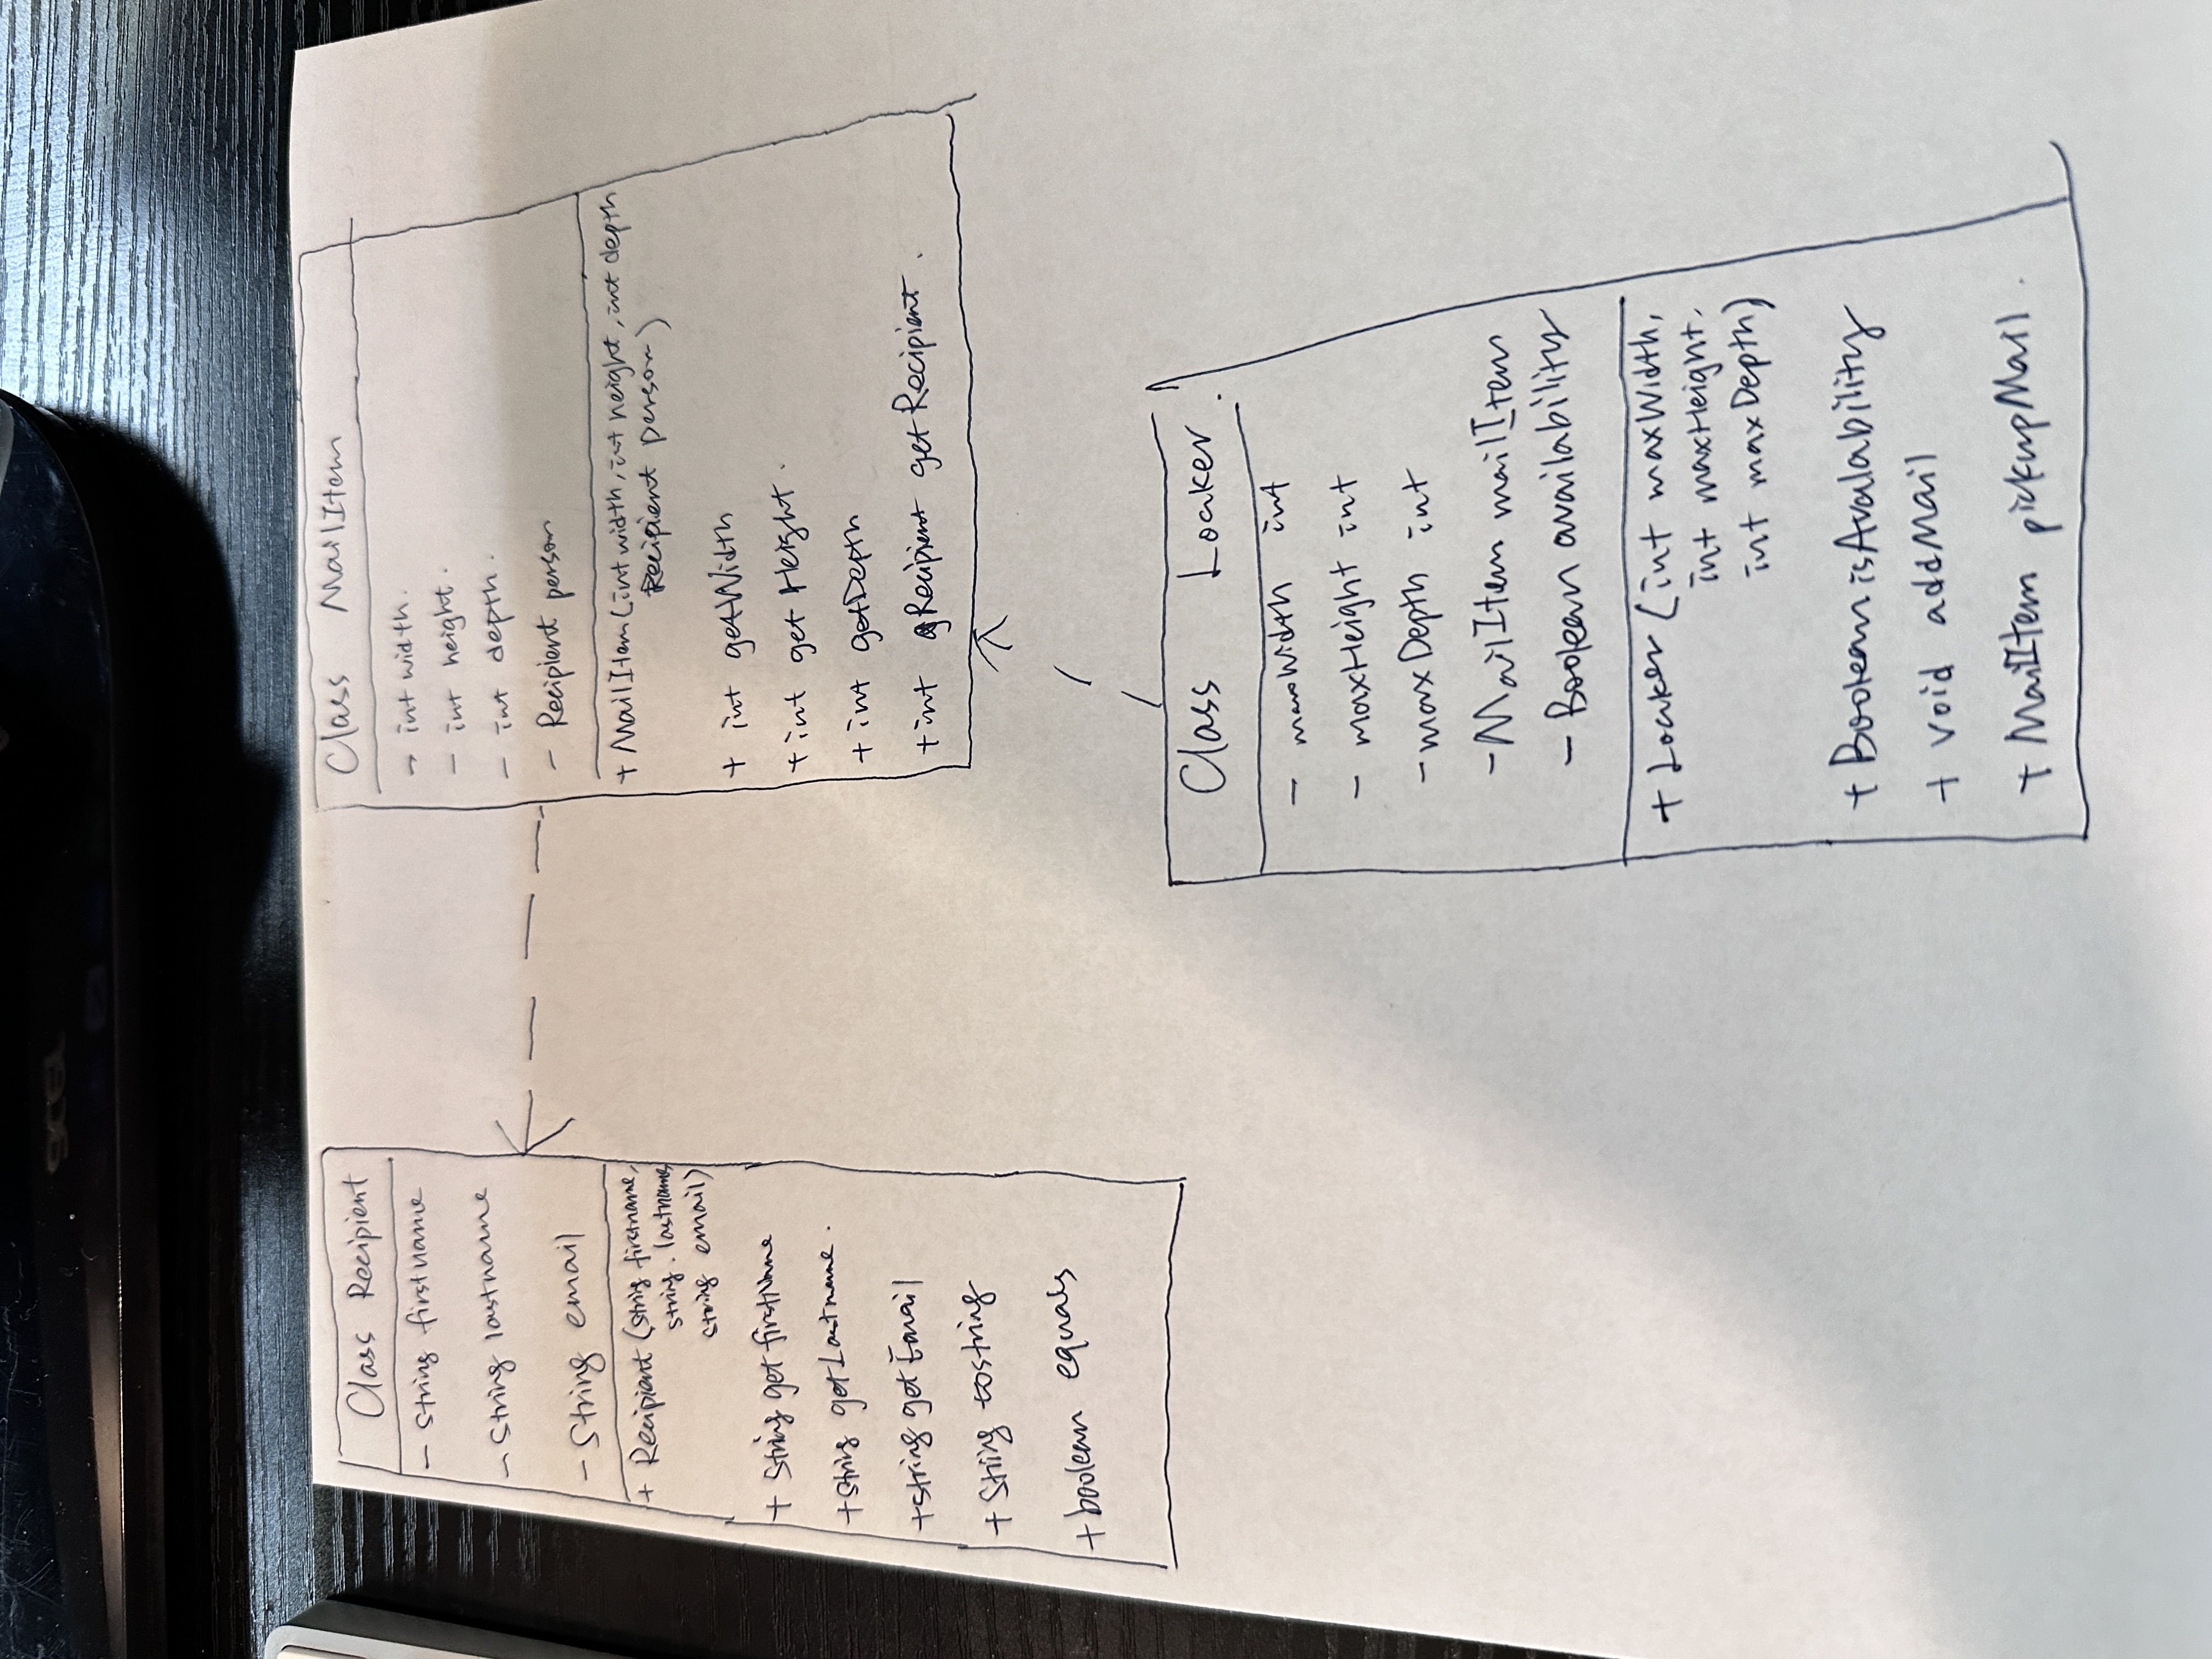 acer
Class Recipient
- String firstname
- String lastname
- String email
+ Recipient (String firstname,
string. lastname,
string email)
+ String getfirstName
+ String getLastname.
+ string getEmail
+ String tostring
+ boolean equals
Class MailItem
- int width.
- int height.
- int depth.
- Recipient person
+ MailItem (int width, int height, int depth
Recipient person)
+ int getWidth
+ int getHeight.
+ int getDepth
+ int Recipient getRecipient.
Class Loaker.
- maxWidth int
- maxHeight int
- maxDepth int
- MailItem mailItem
- Boolean availability
+ Loaker (int maxWidth,
int maxHeight,
int maxDepth)
+ Boolean isAvalability
+ void addMail
+ MailItem pickupMail.